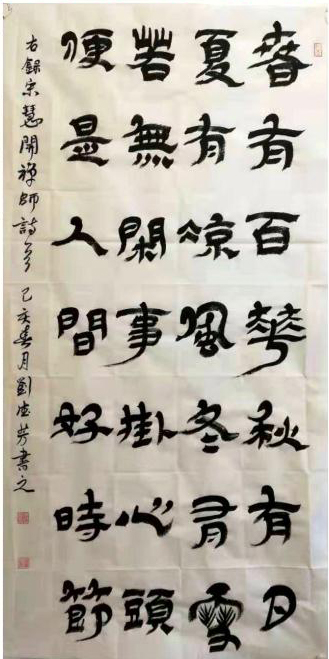 春有百華秋有月
夏有涼風冬有雪
若無閑事掛心頭
便是人間好時節
右錄宋慧開禪師詩 己亥春月劉德芳書之